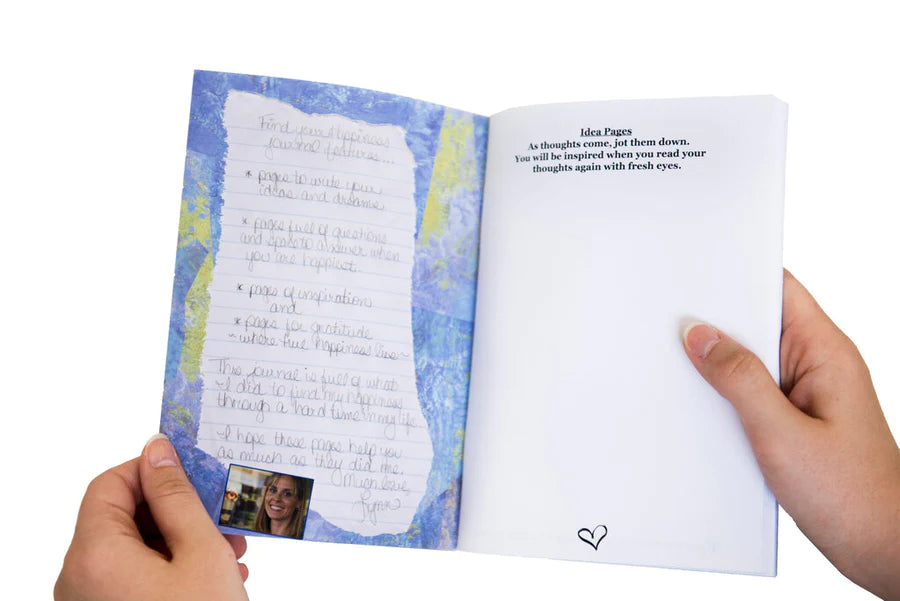 Find your Happiness
journal features...
* pages to write your
ideas and dreams
* pages full of questions
and space to answer when
you are happiest.
* pages of inspiration
and
* pages for gratitude
~where true happiness lives~
This journal is full of what
I did to find my happiness
through a hard time in my life.
I hope these pages help you
as much as they did me.
Much love,
Lynn
Idea Pages
As thoughts come, jot them down.
You will be inspired when you read your
thoughts again with fresh eyes.